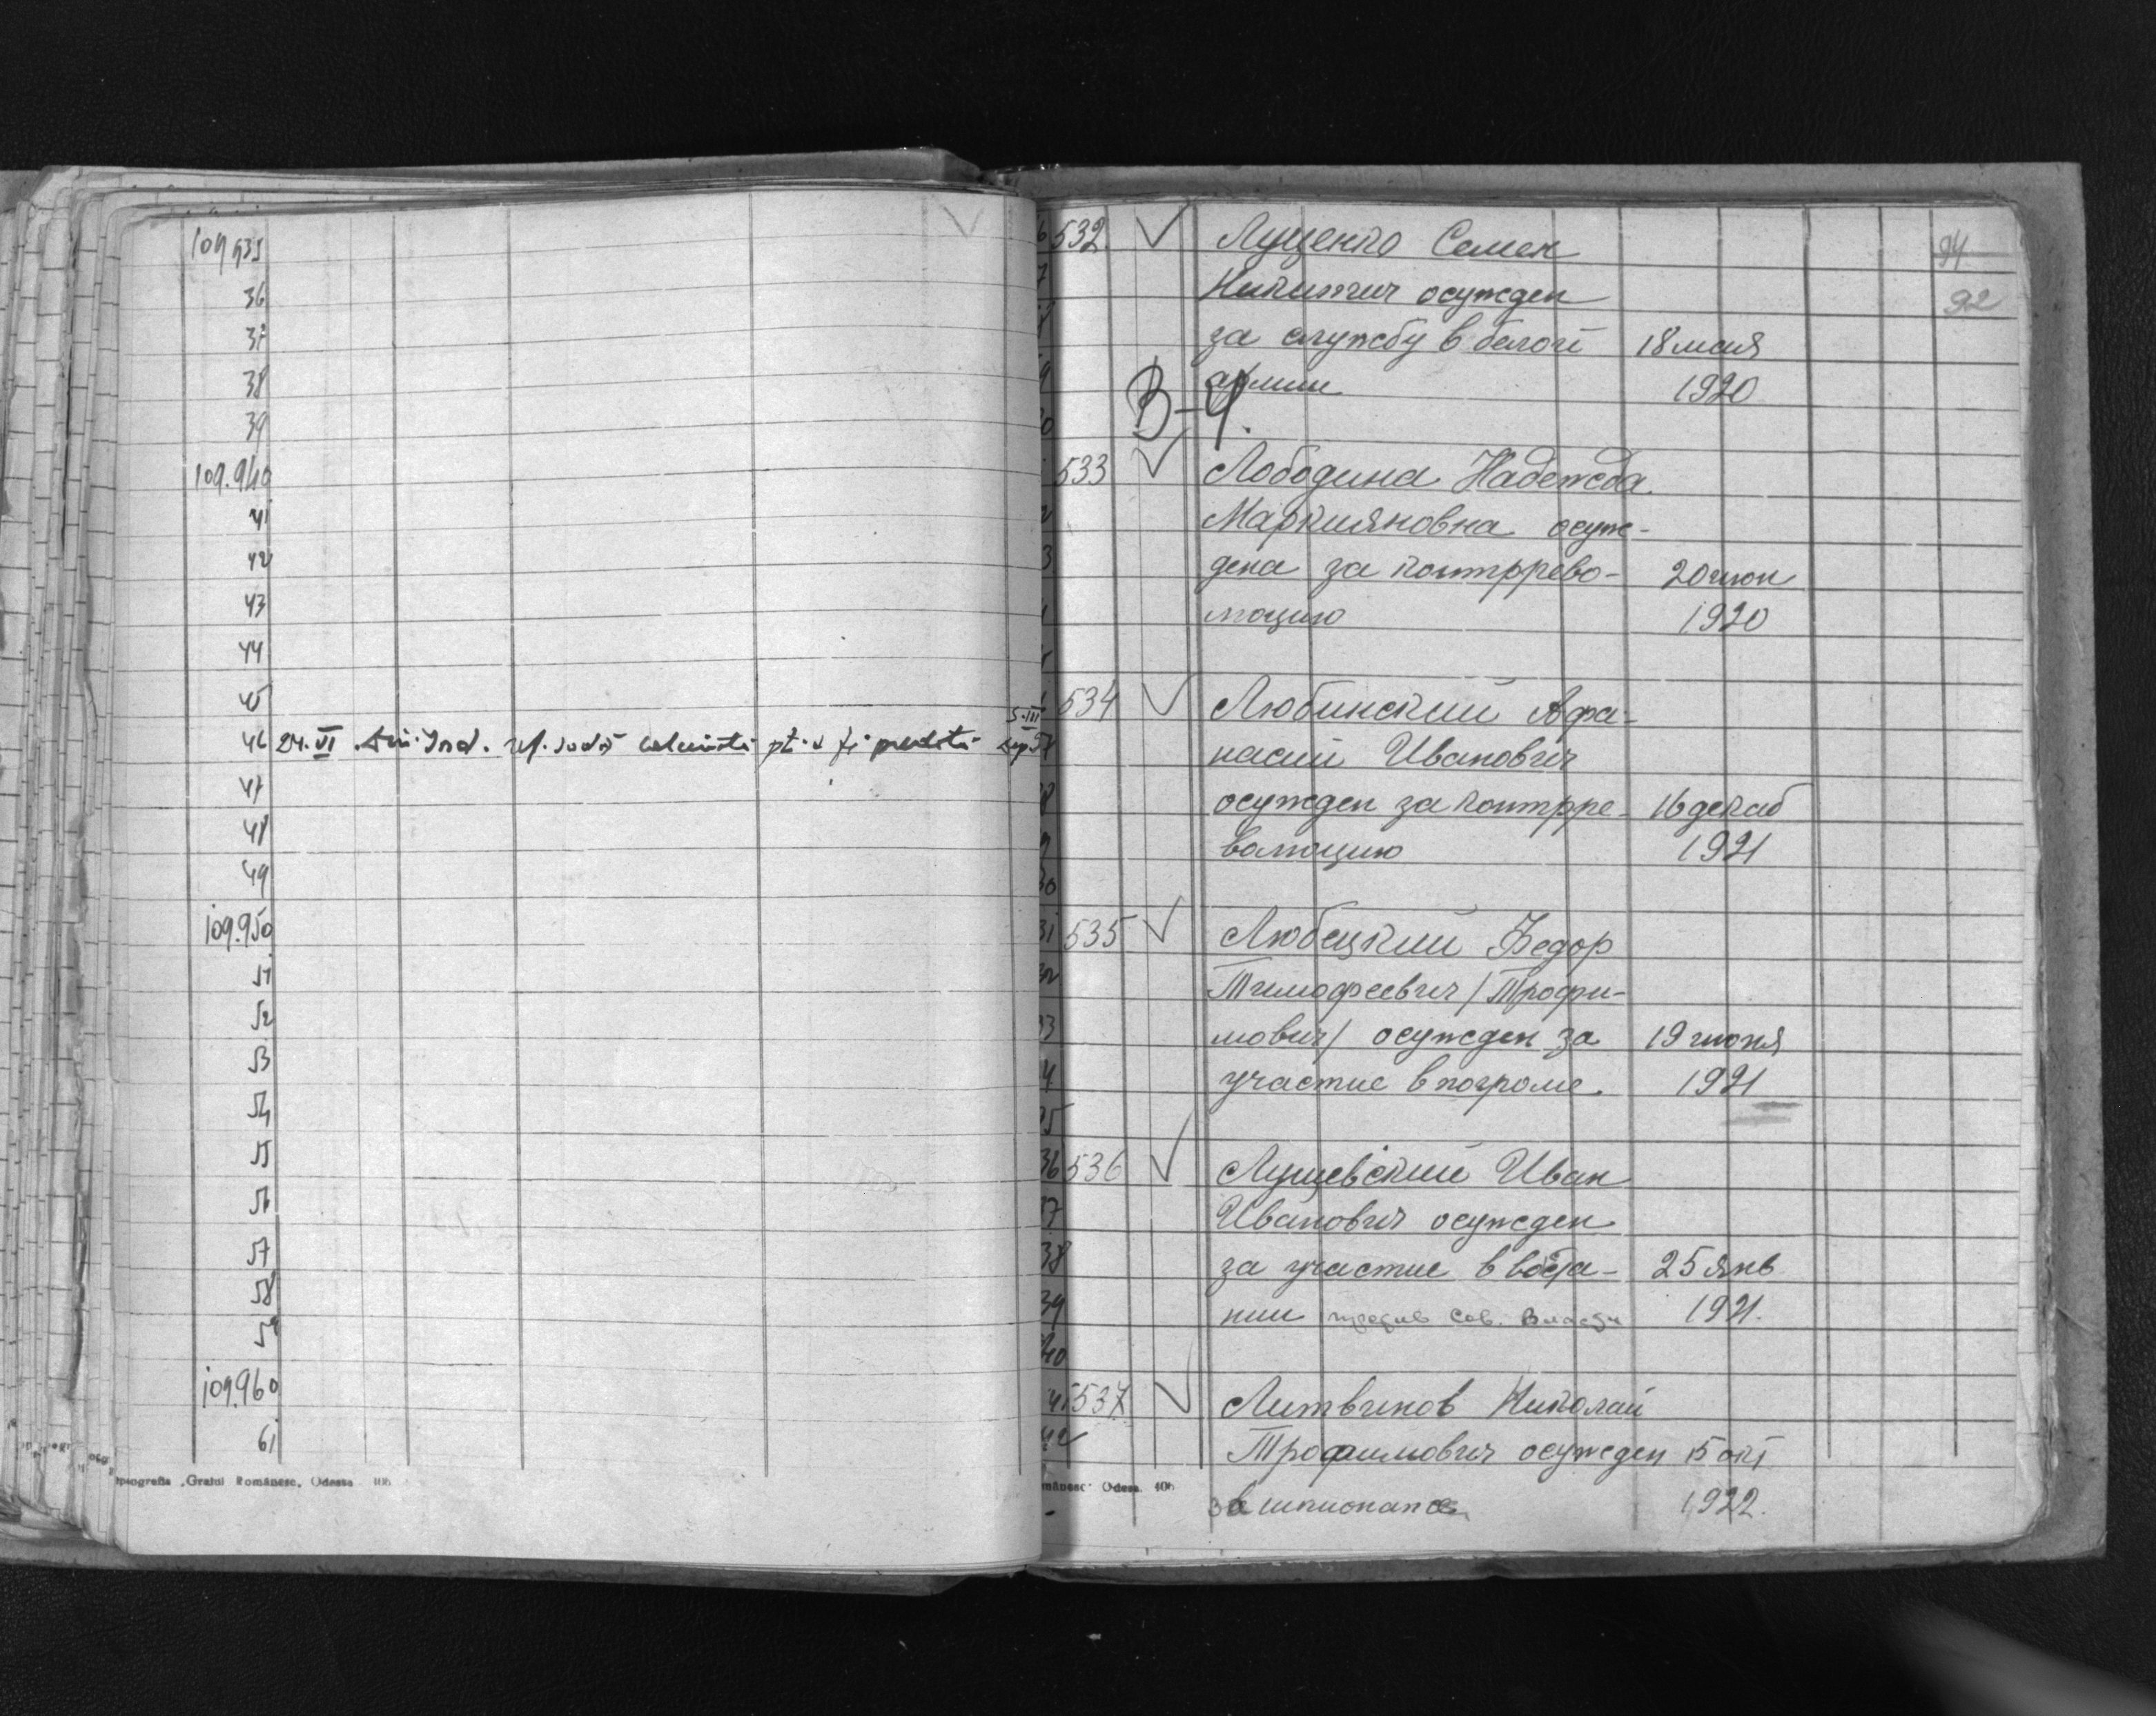 109935
36
37
38
39
109.940
41
42
43
44
45
46 24.VI ref. sodă
47
48
49
109.950
51
52
53
54
55
56
57
58
59
109.960
61
Tipografia „Graiul Românesc, Odessa
94
92
532 Луценко Семен
Никитич осужден
за службу в белой 18 мая
армии 1920
В-4.
533 Лободина Надежда
Маркияновна осуж-
дена за контррево- 20 июн
люцию 1920
534 Любинский Афа-
насий Иванович
осужден за контрре- 16 декаб
волюцию 1921
535 Любецкий Федор
Тимофеевич /Трофи-
мович/ осужден за 19 июня
участие в погроме 1921
536 Лущевский Иван
Иванович осужден
за участие в воста- 25 янв
нии против Сов. Власти 1921.
537 Литвинов Николай
Трофимович осужден 15 окт
за шпионаж 1922.
mânesc" Odesa.